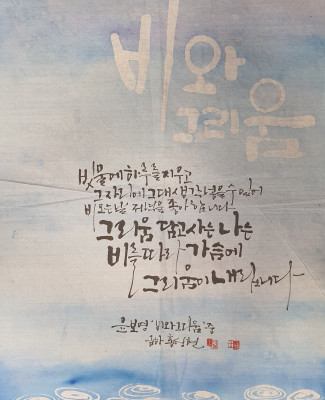 비와
그리움
빗물에 하루를 지우고
그 자리에 그대 생각 넣을 수 있어
비 오는 날 저녁을 좋아합니다
그리움 담고 사는 나는
비를 따라 가슴에
그리움이 내립니다
윤보영 '비와 그리움' 중